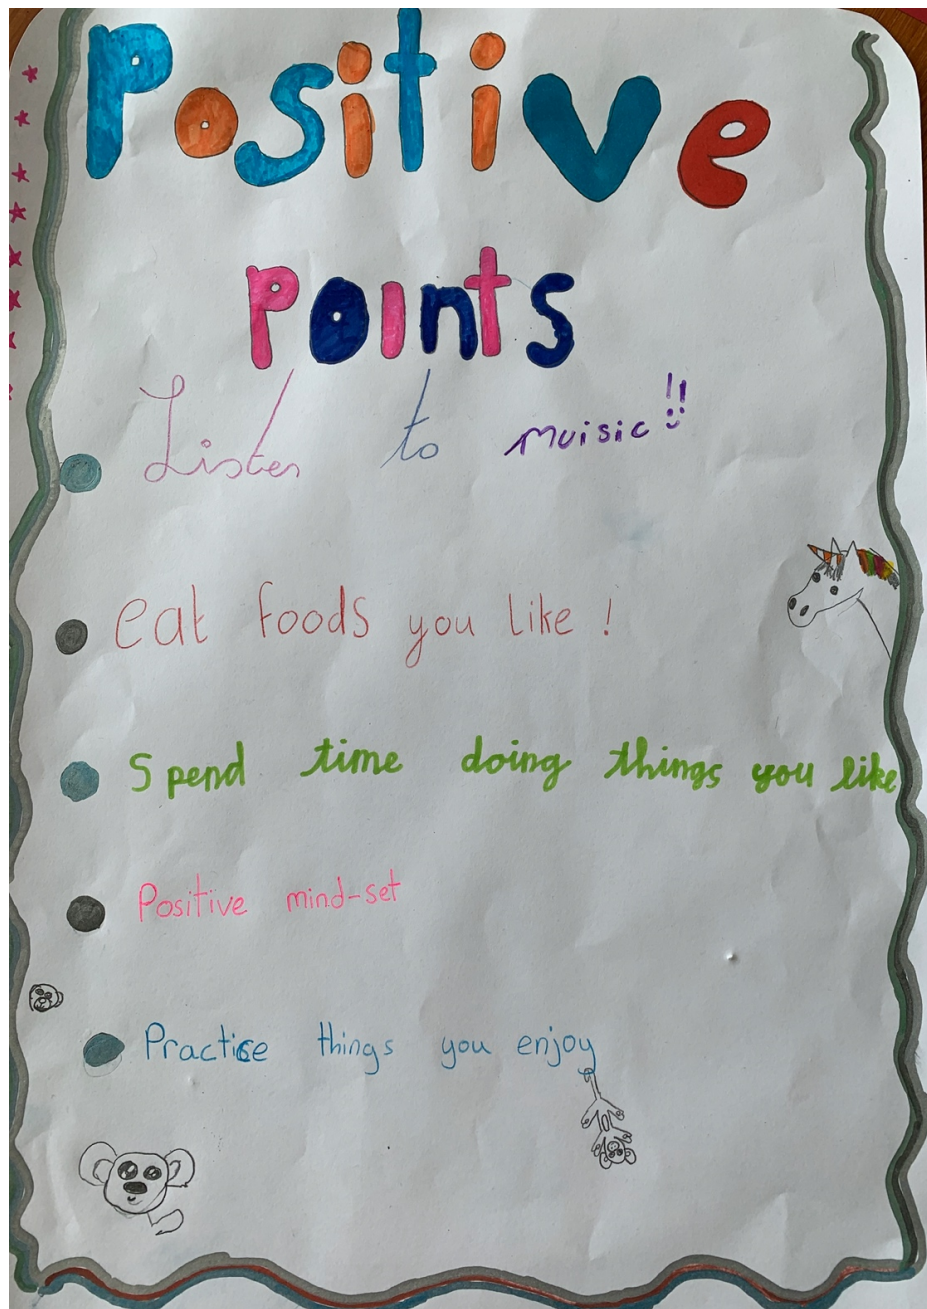 Positive
Points
Listen to muisic!!
eat foods you like !
Spend time doing things you like
Positive mind-set
Practise things you enjoy